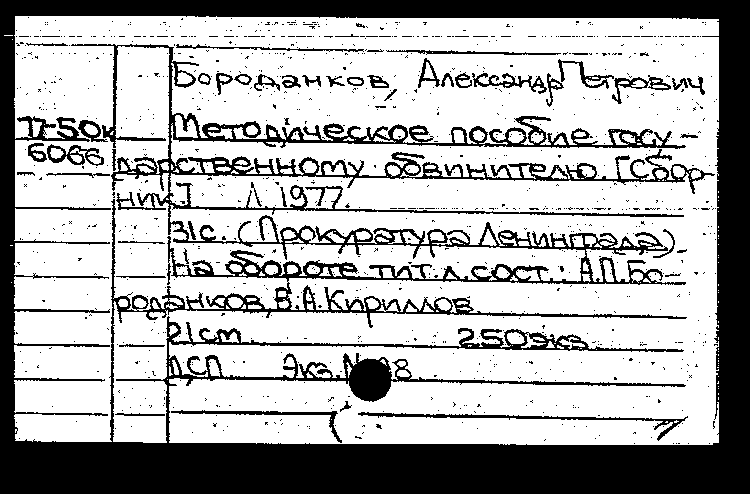 Бороданков, Александр Петрович
П-50к
6066
Методическое пособие госу-
дарственному обвинителю. [Сбор-
ник] Л. 1977.
31с. (Прокуратура Ленинграда).
На обороте тит.л.сост.: А.П.Бо-
роданков, В.А.Кириллов.
21см. 250экз.
ДСП Экз.